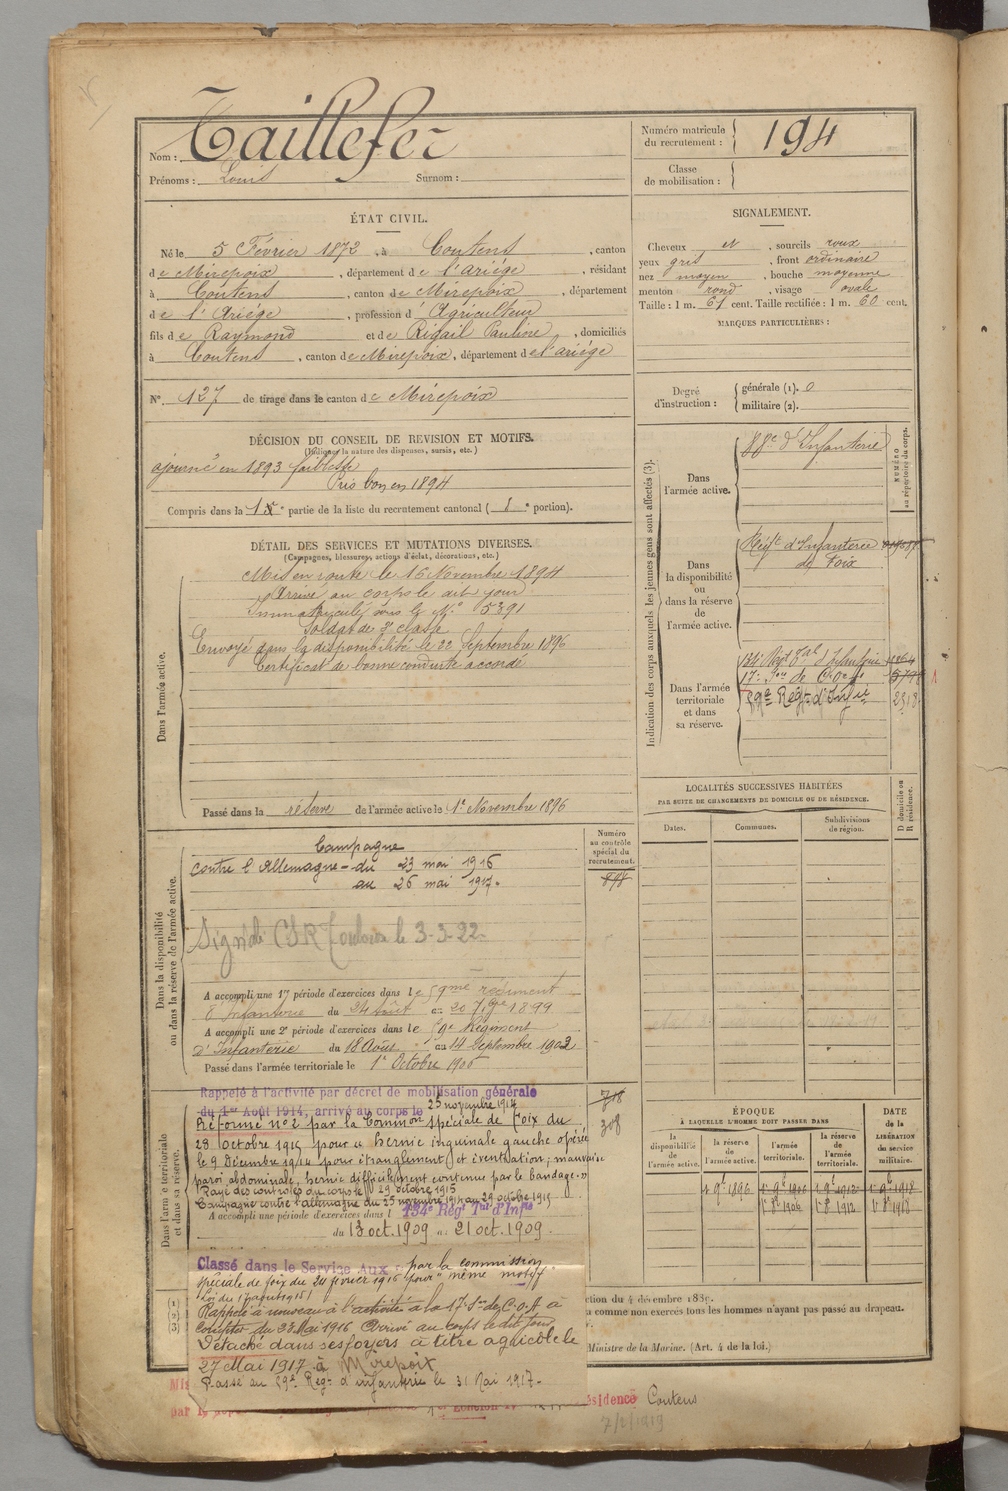 Nom : Taillefer
Prénoms : Louis Surnom :
Numéro matricule du recrutement : 194
Classe de mobilisation :
ÉTAT CIVIL.
Né le 5 Février 1872, à Coutens, canton
de Mirepoix, département de l'ariége, résidant
à Coutens, canton de Mirepoix, département
de l'Ariége, profession d Agriculteur
fils de Raymond et de Rigail Pauline, domiciliés
à Coutens, canton de Mirepoix, département de l'ariége
N° 127 de tirage dans le canton de Mirepoix
DÉCISION DU CONSEIL DE REVISION ET MOTIFS.
(Indiquer la nature des dispenses, sursis, etc.)
ajourné en 1893 faiblesse
Pris bon en 1894
Compris dans la 1re partie de la liste du recrutement cantonal ( e portion).
DÉTAIL DES SERVICES ET MUTATIONS DIVERSES.
(Campagnes, blessures, actions d'éclat, décorations, etc.)
Dans l'armée active.
Mis en route le 16 Novembre 1894
Arrivé au corps le dit jour
Immatriculé sous le N° 5391
Soldat de 2e classe
Envoyé dans la disponibilité le 22 Septembre 1896
Certificat de bonne conduite accordé
Passé dans la réserve de l'armée active le 1er Novembre 1896
Dans la disponibilité ou dans la réserve de l'armée active.
Numéro au contrôle spécial du recrutement.
Campagne
contre l'Allemagne - du 23 mai 1916
au 26 mai 1917.
898
Signalé CSR Toulouse le 3-3-22
A accompli une 1re période d'exercices dans le 59me régiment
d'Infanterie du 24 août au 20 7bre 1899
A accompli une 2e période d'exercices dans le 59e Régiment
d'Infanterie du 18 Août au 14 Septembre 1902
Passé dans l'armée territoriale le 1er Octobre 1906
Dans l'armée territoriale et dans sa réserve.
Rappelé à l'activité par décret de mobilisation générale
du 1er Août 1914, arrivé au corps le 25 novembre 1914
718
308
Réformé n° 2 par la Common spéciale de Foix du
28 Octobre 1915 pour « hernie inguinale gauche opérée
le 9 Décembre 1914 pour étranglement et éventration, mauvaise
paroi abdominale, hernie difficilement contenue par le bandage. »
Rayé des contrôles du corps le 29 octobre 1915
Campagne contre l'allemagne du 25 novembre 1914 au 29 octobre 1915
A accompli une période d'exercices dans l 134e Régt Tal d'Infie
du 13 oct. 1909 au 21 oct. 1909
Classé dans le Service Aux par la commission
spéciale de foix du 24 février 1916 pour « même motif
Loi du 17 août 1915
Rappelé à nouveau à l'activité à la 17e Son de C.O.A à
compter du 23 Mai 1916 Arrivé au corps le dit jour
Détaché dans ses foyers à titre agricole le
27 Mai 1917 à Mirepoix
Passé au 59e Régt d'infanterie le 31 Mai 1917.
SIGNALEMENT.
Cheveux et, sourcils roux
yeux gris, front ordinaire
nez moyen, bouche moyenne
menton rond, visage ovale
Taille : 1 m. 61 cent. Taille rectifiée : 1 m. 60 cent.
MARQUES PARTICULIÈRES :
Degré d'instruction : générale (1). 0
militaire (2).
Indication des corps auxquels les jeunes gens sont affectés (3).
NUMÉRO au répertoire du corps.
Dans l'armée active.
88e d'Infanterie
Dans la disponibilité ou dans la réserve de l'armée active.
Régt d'Infanterie
de Foix
Dans l'armée territoriale et dans sa réserve.
134e Régt Tal d'Infanterie
17e Son de C.O.A.
59e Régt d'Infie 2318
LOCALITÉS SUCCESSIVES HABITÉES
PAR SUITE DE CHANGEMENTS DE DOMICILE OU DE RÉSIDENCE.
Dates. Communes. Subdivisions de région. D domicile ou R résidence.
ÉPOQUE
À LAQUELLE L'HOMME DOIT PASSER DANS
DATE DE LA LIBÉRATION du service militaire.
la disponibilité de l'armée active. la réserve de l'armée active. l'armée territoriale. la réserve de l'armée territoriale.
1er 9e 1896 1er 9e 1906 1er 9e 1912 1er 9e 1918
1er 8e 1906 1er 8e 1912 1er 8e 1918
ction du 4 décembre 1889.
comme non exercés tous les hommes n'ayant pas passé au drapeau.
Ministre de la Marine. (Art. 4 de la loi.)
(1)
(2)
(3)
ésidence Coutens
7/2/1919